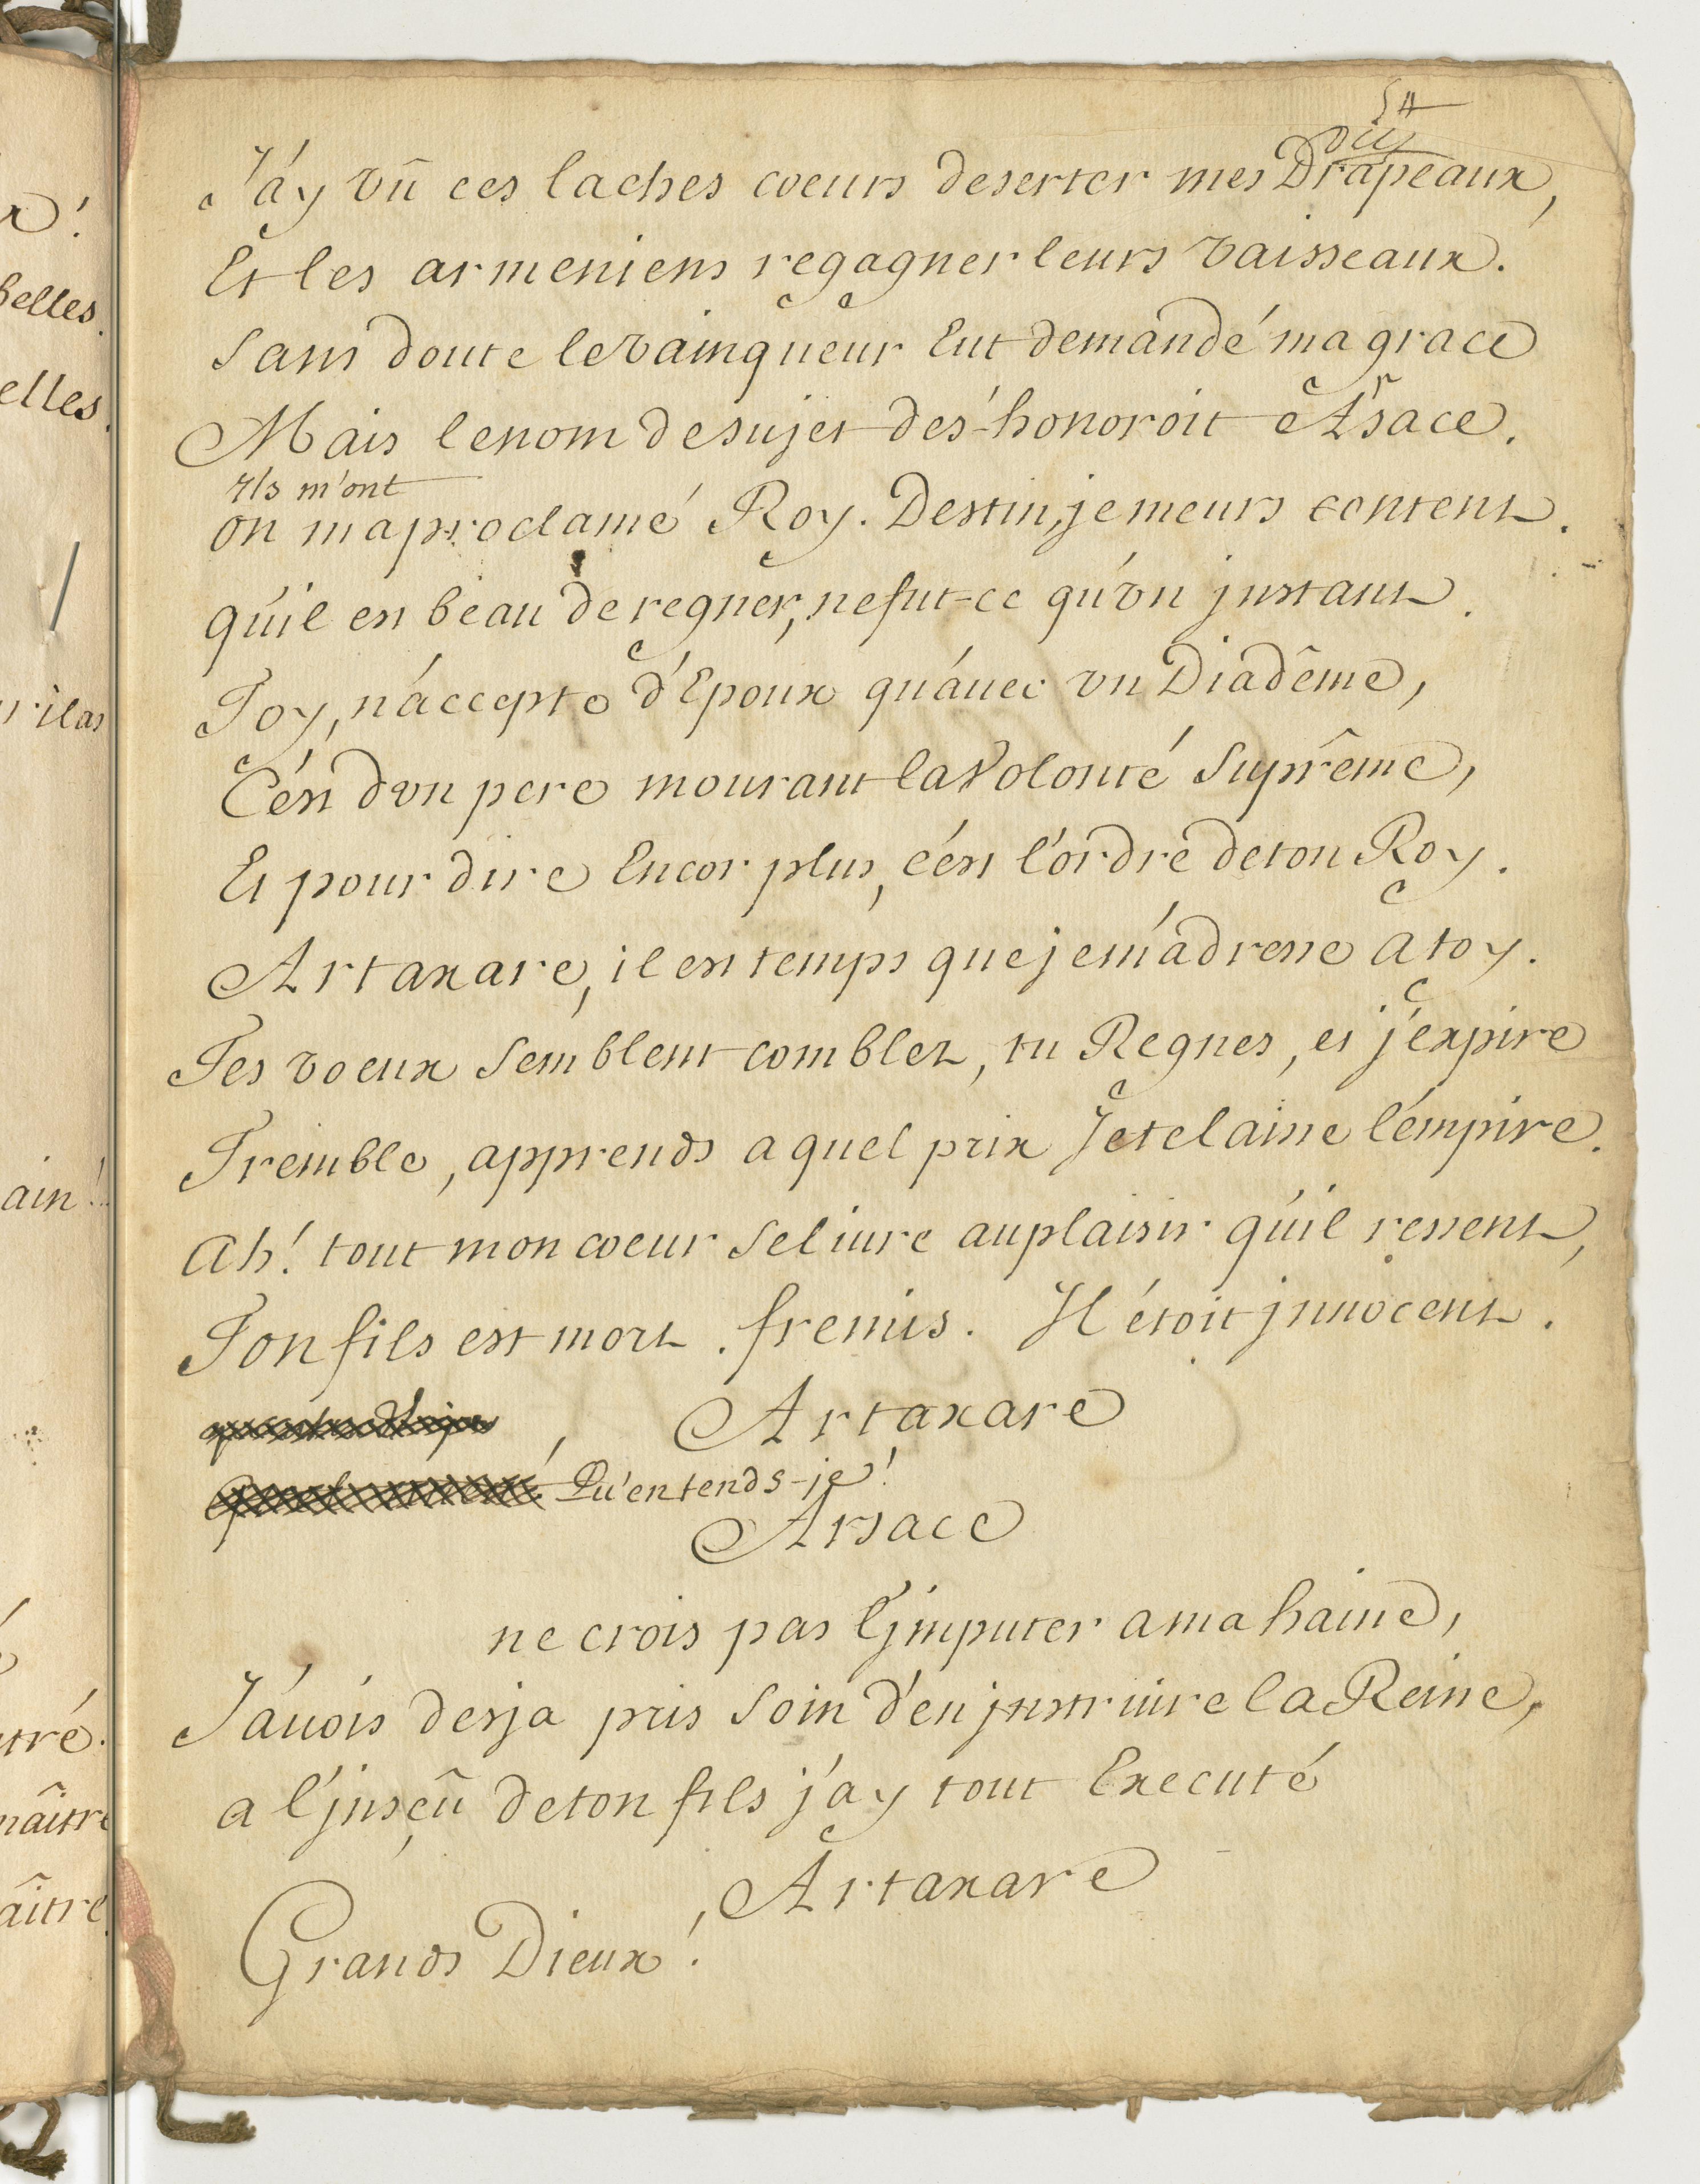 54
J'ay vû ces laches coeurs deserter mes Drapeaux,
Et les armeniens regagner leurs vaisseaux.
Sans doute le vainqueur Eut demandé ma grace
Mais le nom de sujet des-honoroit Arsace.
Ils m'ont
on m'a proclamé Roy. Destin, je meurs content.
qu'il est beau de regner, ne fut-ce qu'un jnstant.
Toy, n'accepte d'Epoux qu'avec un Diadême,
C'est d'un pere mourant la Volonté Suprême,
Et pour dire Encor plus, c'est l'ordre de ton Roy.
Artaxare, il est temps que je m'adresse a toy.
Tes voeux Semblent comblez, tu Regnes, et j'expire
Tremble, apprends a quel prix Je te laisse l'empire.
Ah! tout mon coeur Se livre au plaisir qu'il ressent,
Ton fils est mort. fremis. Il étoit jnnocent.
Artaxare
Qu'entends-je!
Arsace
ne crois pas l'jmputer a ma haine,
J'avois desja pris Soin d'en jnstruire la Reine,
a l'jnsçû de ton fils j'ay tout Executé
Artaxare
Grands Dieux!
belles.
elles.
ain!
tré.
maître
aître